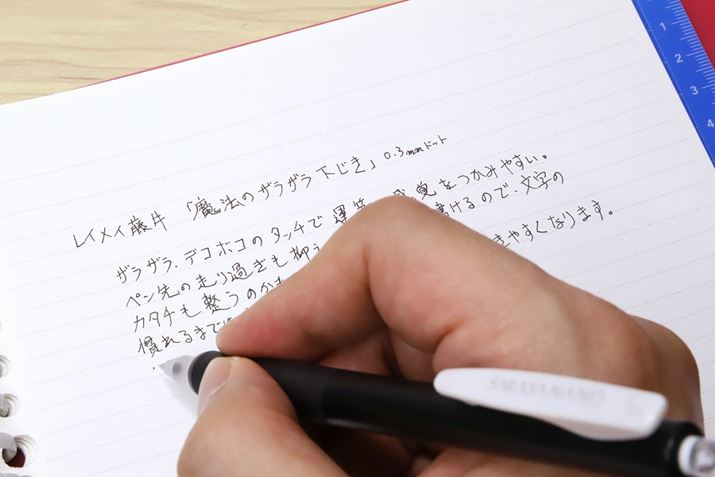 No.
Date
レイメイ藤井 「魔法のザラザラ下じき」 0.3mmドット
ザラザラ、デコボコのタッチで運筆 感覚をつかみやすい。
ペン先の走り過ぎも抑 書けるので、文字の
カタチも整うのか きやすくなります。
慣れるまで
SARASA NANO
1
2
3
4